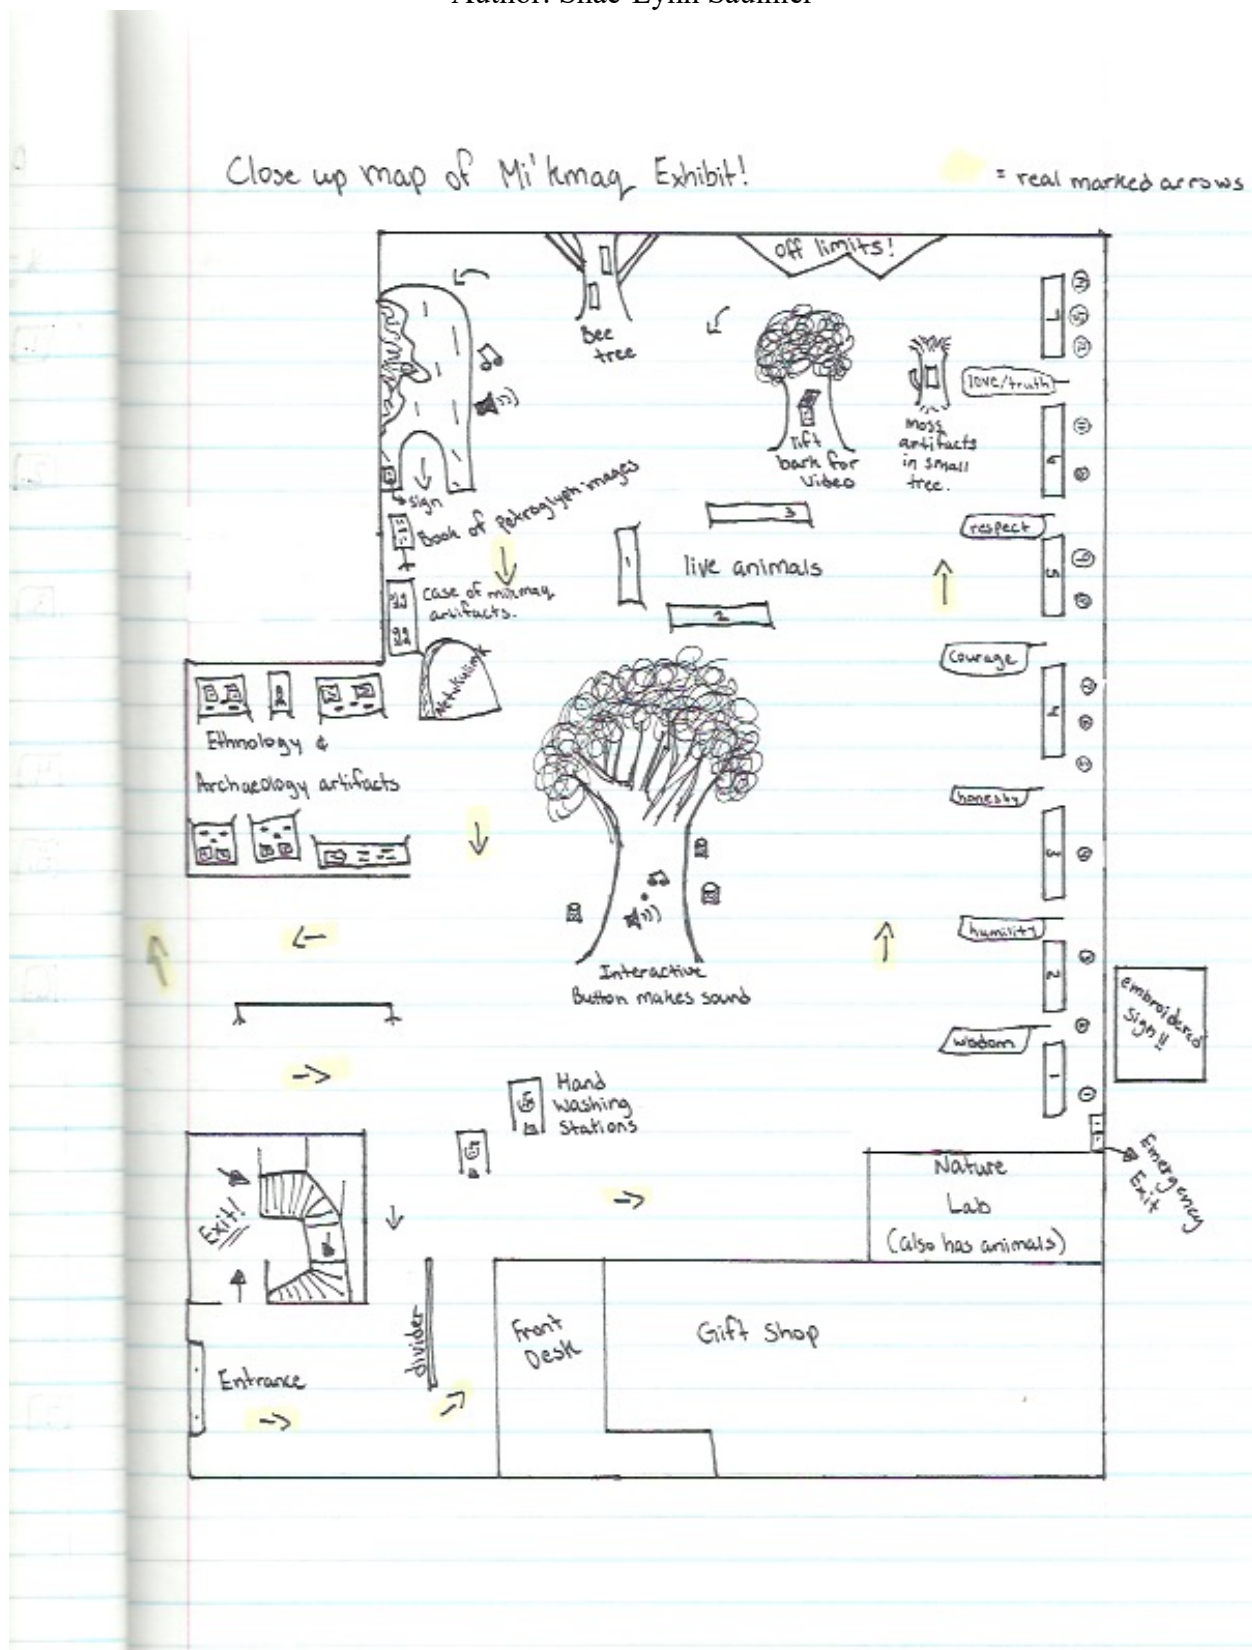 Close up map of Mi'kmaq Exhibit!
= real marked arrows
off limits!
Bee
tree
lift
bark for
video
moss
artifacts
in small
tree.
7
love/truth
6
respect
5
Courage
4
honesty
3
humility
2
wisdom
1
embroidered
sign!!
sign
Book of petroglyph images
case of mikmaq
artifacts.
3
1
live animals
2
Netukulimk
Ethnology &
Archaeology artifacts
Interactive
Button makes sound
Hand
washing
Stations
Emergency
Exit
Nature
Lab
(also has animals)
Exit!
divider
Front
Desk
Gift Shop
Entrance